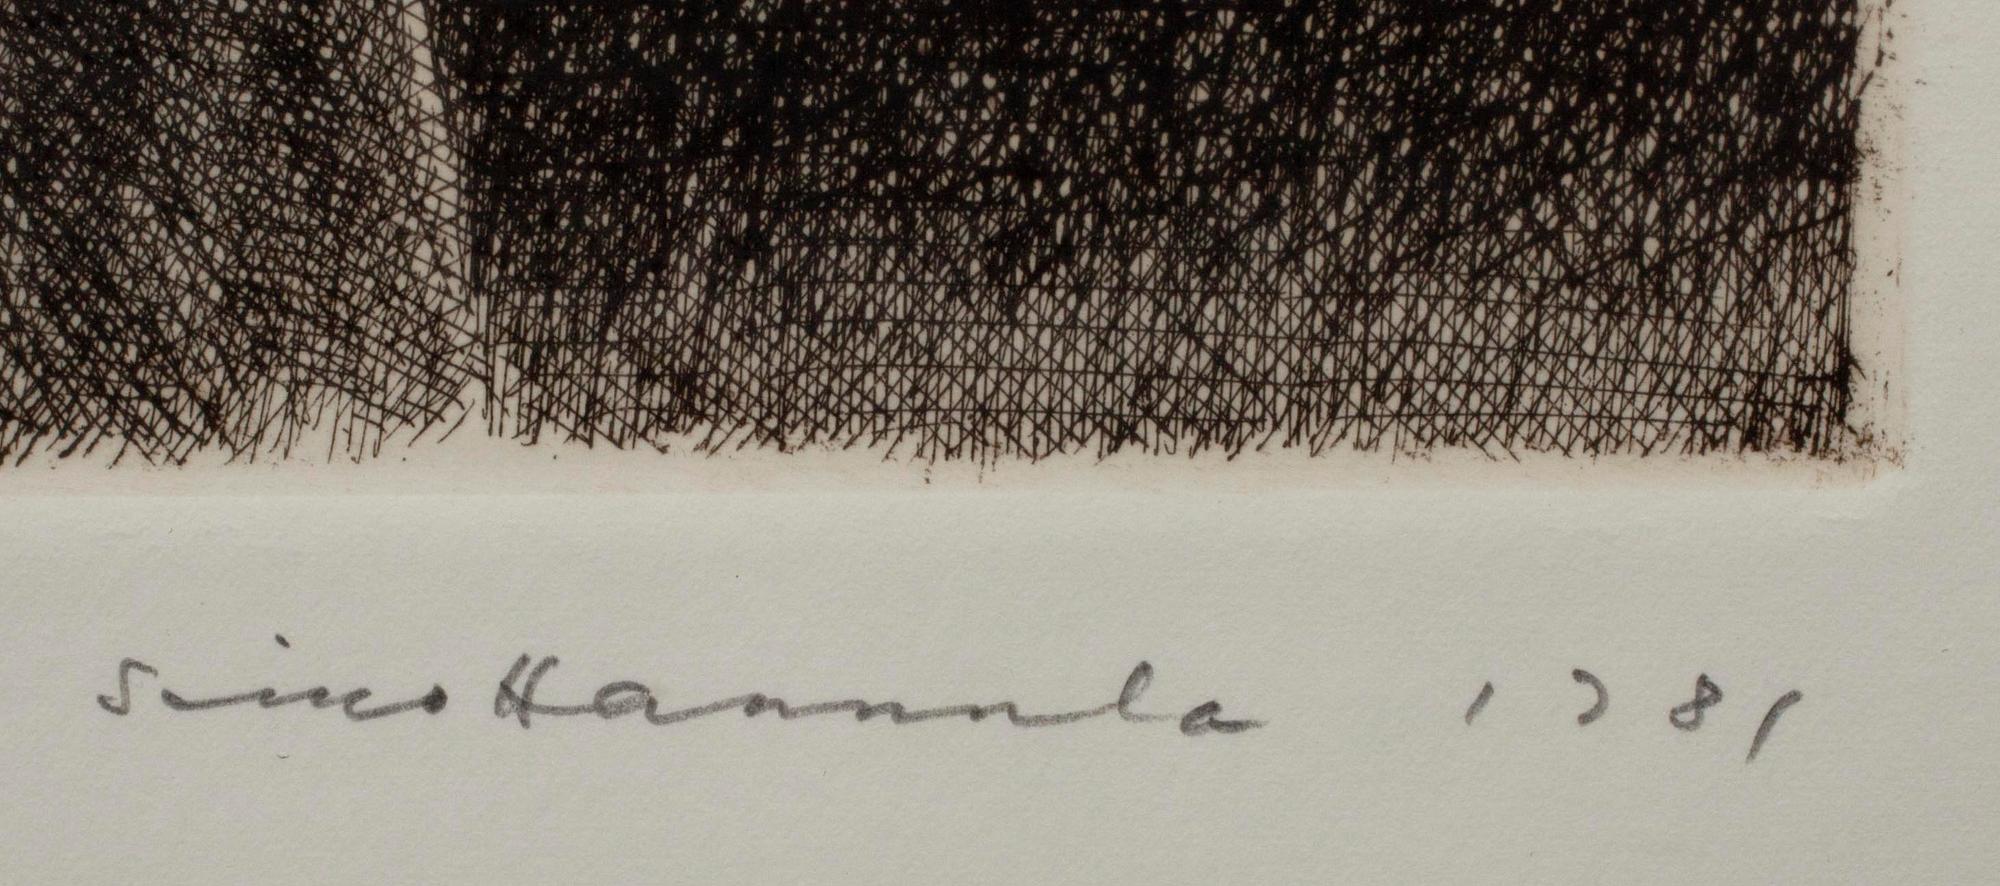 Simo Hannula 1981